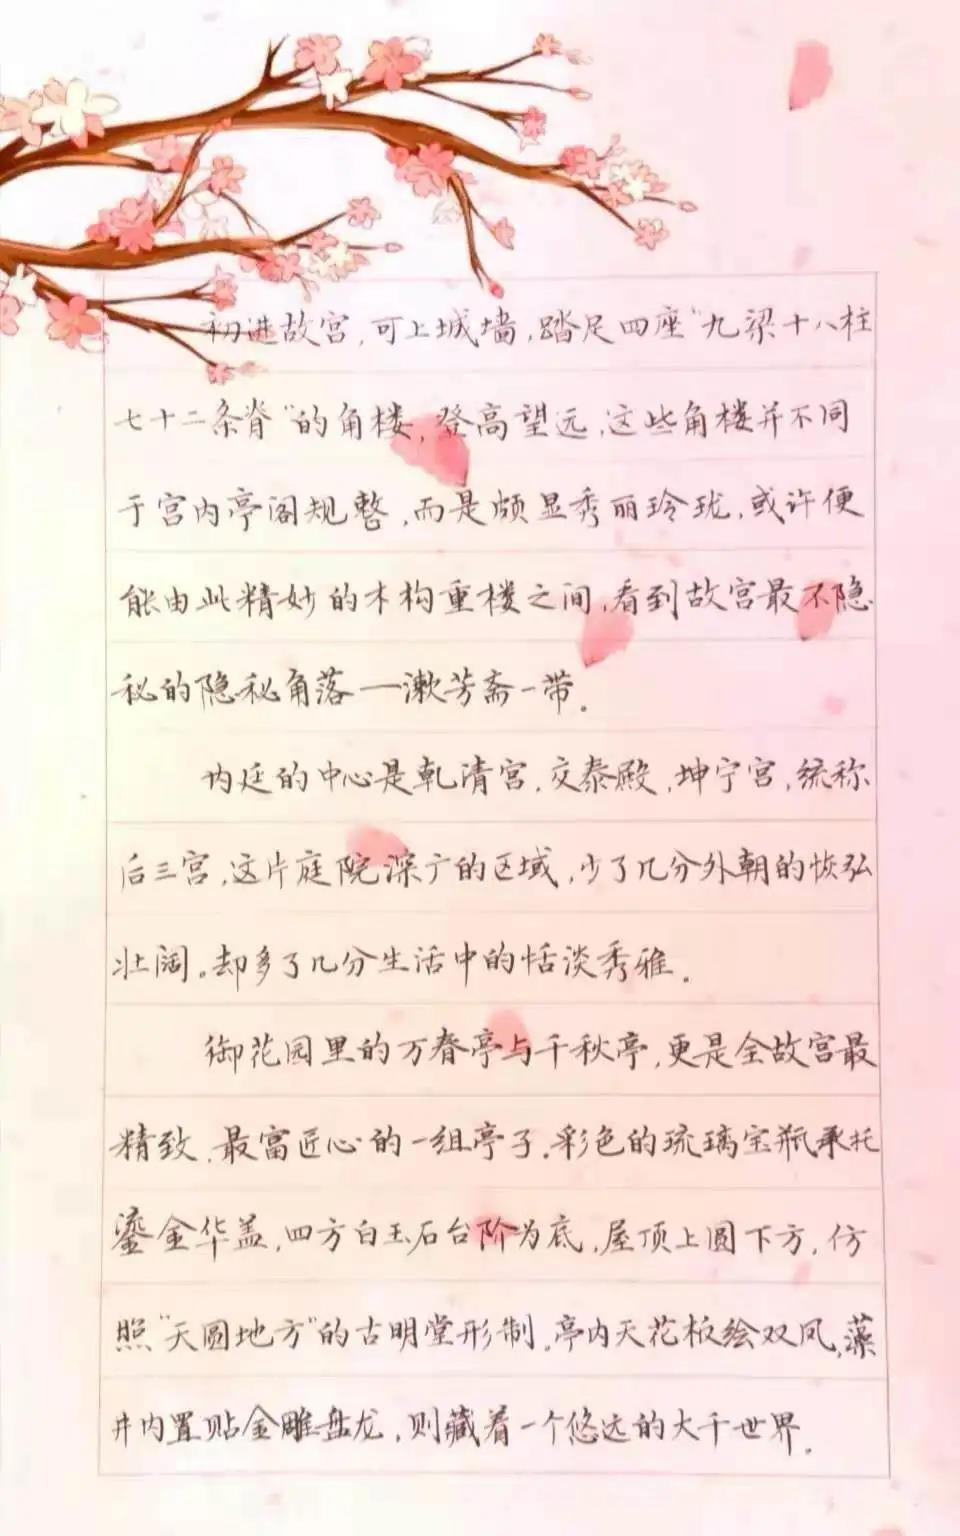 初进故宫,可上城墙,踏足四座“九梁十八柱
七十二条脊”的角楼,登高望远,这些角楼并不同
于宫内亭阁规整,而是颇显秀丽玲珑,或许便
能由此精妙的木构重楼之间,看到故宫最不隐
秘的隐秘角落一漱芳斋一带。
内廷的中心是乾清宫,交泰殿,坤宁宫,统称
后三宫,这片庭院深广的区域,少了几分外朝的恢弘
壮阔。却多了几分生活中的恬淡秀雅。
御花园里的万春亭与千秋亭,更是全故宫最
精致、最富匠心的一组亭子。彩色的琉璃宝瓶承托
鎏金华盖,四方白玉石台阶为底,屋顶上圆下方,仿
照“天圆地方”的古明堂形制。亭内天花板绘双凤,藻
井内置贴金雕盘龙,则藏着一个悠远的大千世界。